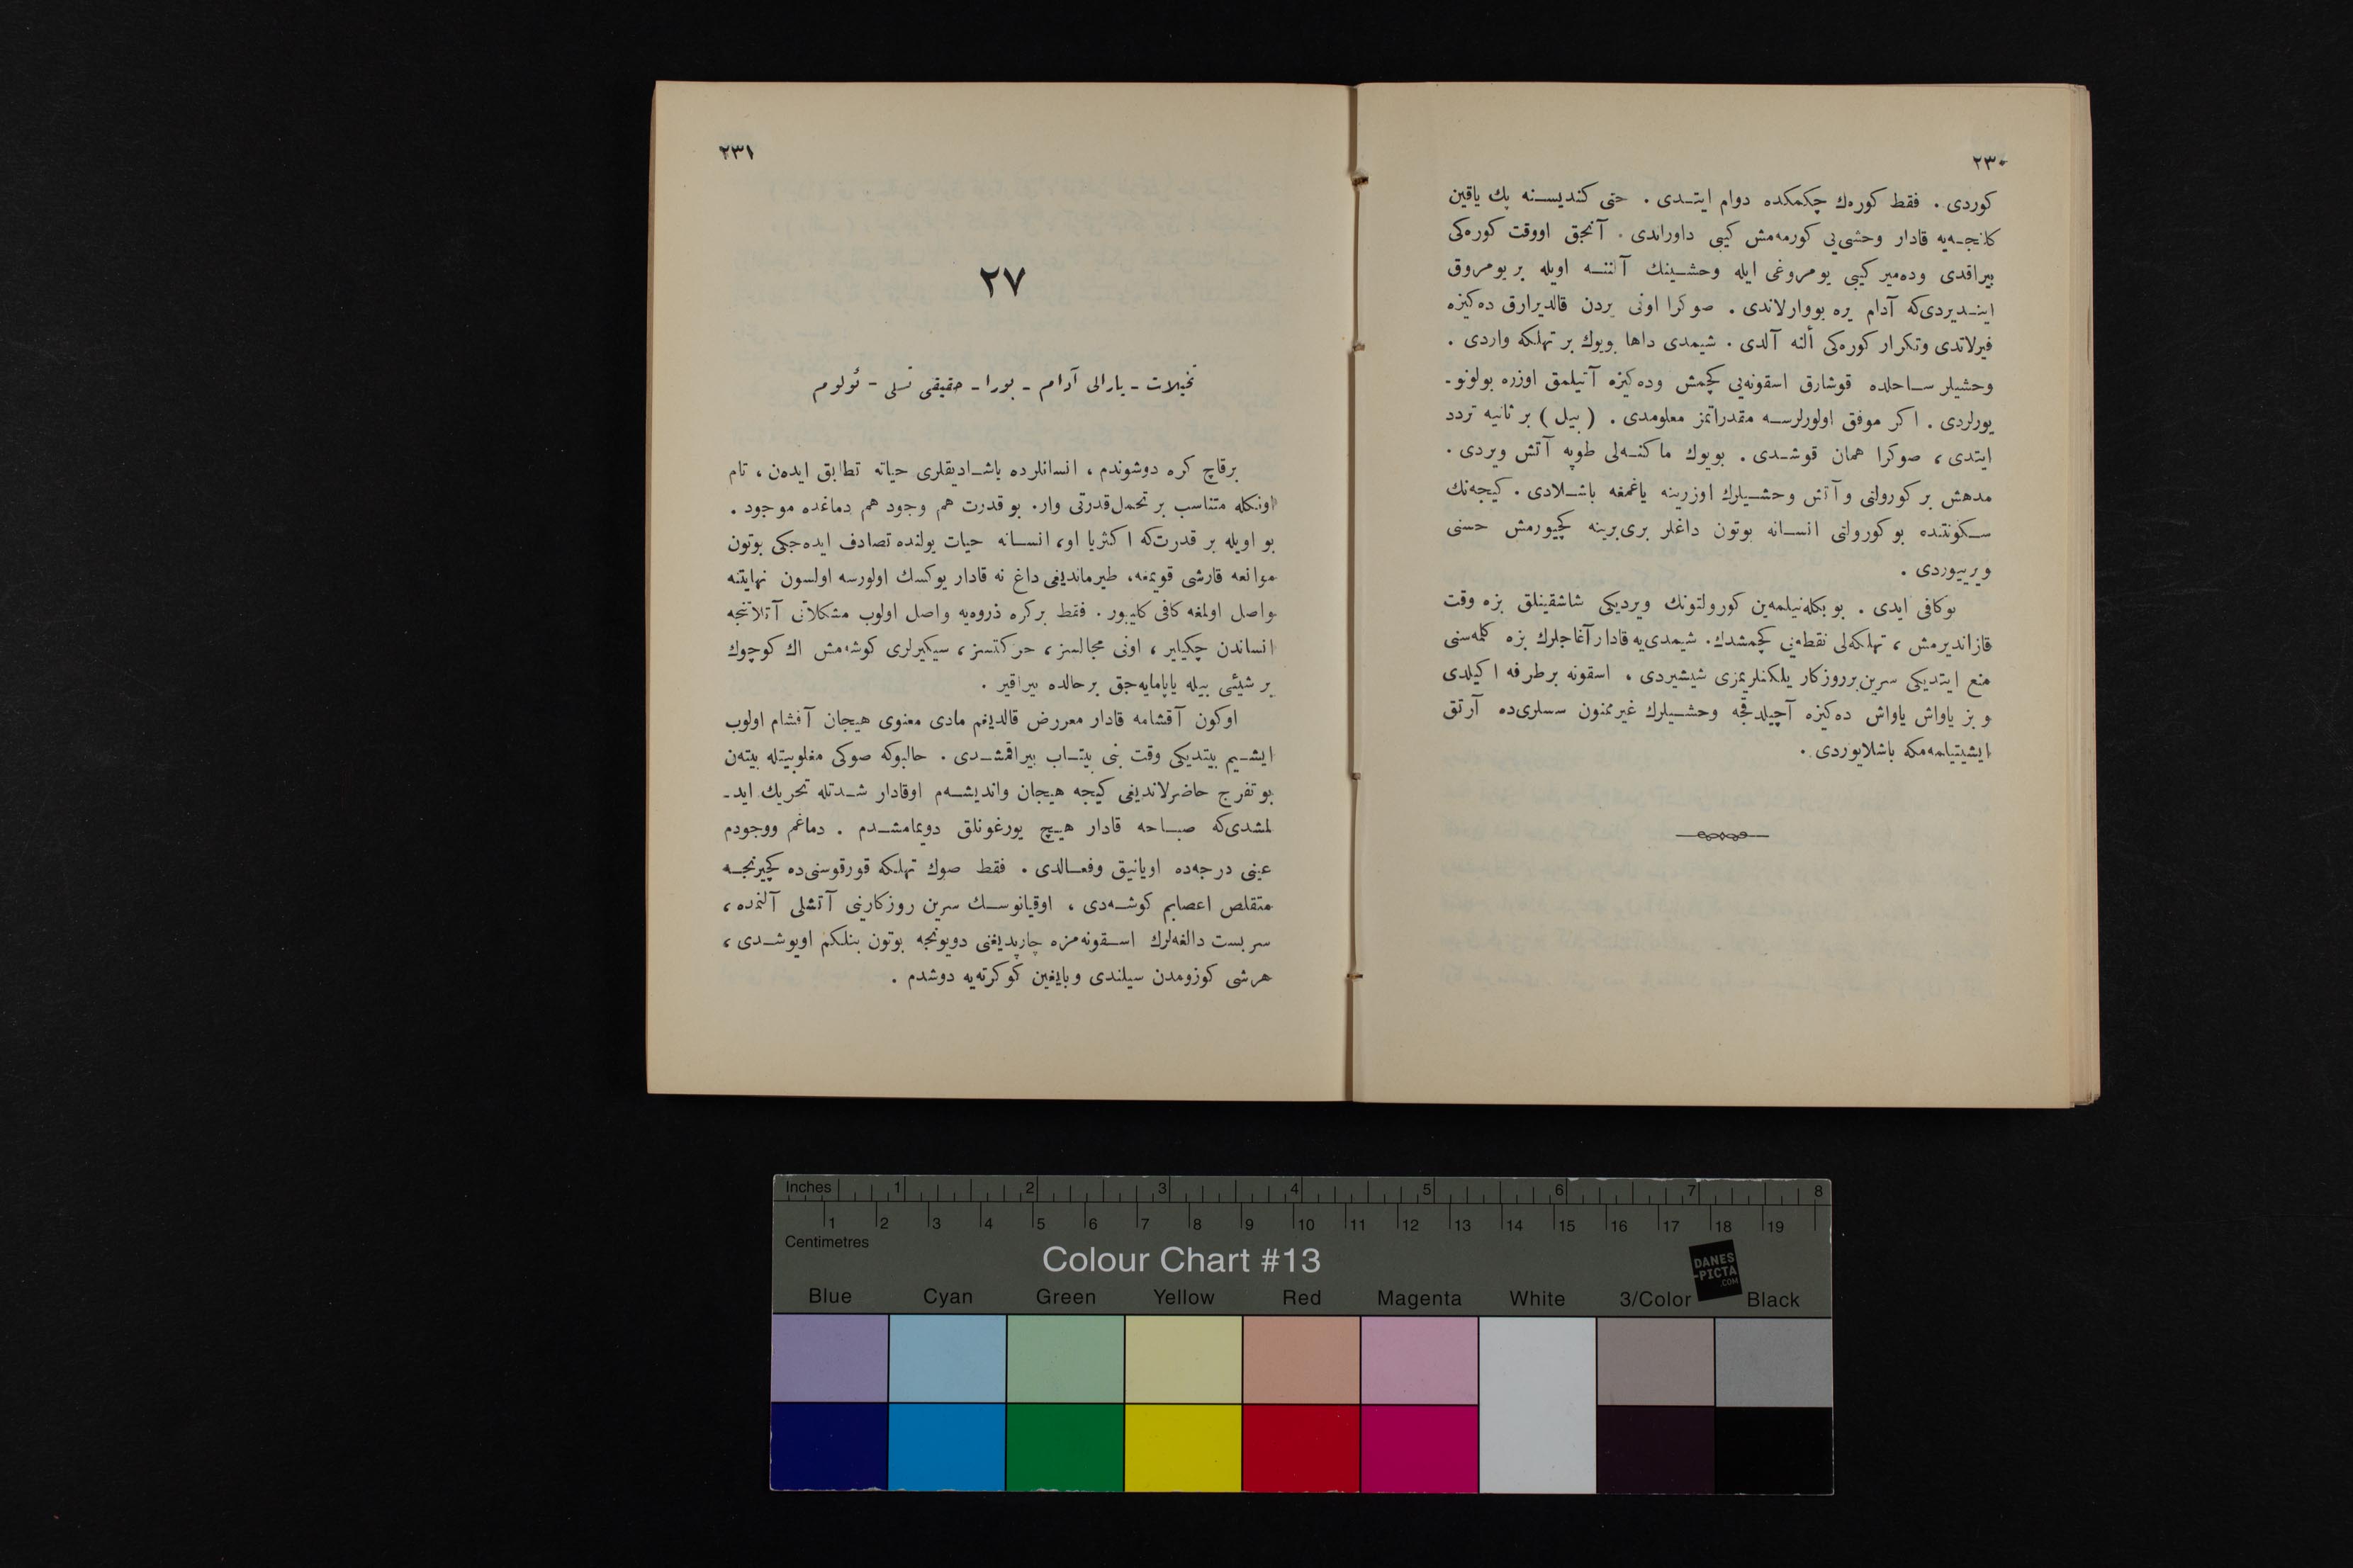 ٢٣٠
كوردى . فقط كورەك چكمكده دوام ايتـدى . حتى كنديسـنه پك ياقين
كلنجـه‌يه قادار وحشى‌يى كورمه‌مش كيبى داوراندى . آنجق اووقت كورەكى
بيراقدى وده‌مير كيبى يومروغى ايله وحشـينك آلننـه اويله بر يومروق
اينـديردى‌كه آدام يره يووارلاندى . صوكرا اونى يردن قالديرارق ده‌كيزه
فيرلاتدى وتكرار كورەكى ألنه آلدى . شيمدى داها بويوك بر تهلكه واردى .
وحشيلر سـاحلده قوشارق اسقونه‌يى كچمش وده‌كيزه آتيلمق اوزره بولونو-
يورلردى . اكر موفق اولورلرسـه مقدراتمز معلومدى . ( بيل ) بر ثانيه تردد
ايتدى ، صوكرا همان قوشـدى . بويوك ماكنـه‌لى طوپه آتش ويردى .
مدهش بر كورولتى وآتش وحشـيلرك اوزرينه ياغمغه باشـلادى . كيجه‌نك
سـكونتنده بو كورولتى انسـانه بوتون داغلر برى‌برينه كچيورمش حسنى
ويرييوردى .
بوكافى ايدى . بو بكله‌نيلمه‌ين كورولتونك ويرديكى شاشقينلق بزه وقت
قازانديرمش ، تهلكه‌لى نقطه‌يى كچمشدك . شيمدى‌يه قادار آغاجلرك بزه كلمه‌سنى
منع ايتديكى سرين برروزكار يلكنلريمزى شيشيردى ، اسقونه برطرفه اكيلدى
و بز ياواش ياواش ده‌كيزه آچيلدقجه وحشـيلرك غيرممنون سسلرى‌ده آرتق
ايشيتيلمه‌مكه باشلايوردى .
٢٣١
٢٧
تخيلات - يارالى آدام - بورا - حقيقى تسلى - ئولوم
برقاچ كره دوشوندم ، انسانلرده ياشـاديقلرى حياته تطابق ايدەن ، تام
اونكله متناسب بر تحمل‌قدرتى وار. بو قدرت هم وجود هم دماغده موجود .
بو اويله بر قدرت‌كه اكثريا او، انسـانه حيات يولنده تصادف ايده‌جكى بوتون
موانعه قارشى قويمغه، طيرمانديغى داغ نه قادار يوكسك اولورسه اولسون نهايتنه
واصل اولمغه كافى كلييور . فقط بركره ذروه‌يه واصل اولوب مشكلاتى آتلاتنجه
انساندن چكيلير ، اونى مجالسز ، حركتسز ، سيكيرلرى كوشه‌مش اك كوچوك
بر شيئى بيله ياپامايه‌جق برحالده بيراقير .
اوكون آقشامه قادار معرض قالديغم مادى معنوى هيجان آقشام اولوب
ايشـيم بيتديكى وقت بنى بيتـاب بيراقمشـدى . حالبوكه صوكى مغلوبيتله بيته‌ن
بو تفرج حاضرلانديغى كيجه هيجان وانديشـه‌م اوقادار شـدتله تحريك ايد-
لمشدى‌كه صبـاحه قادار هيـچ يورغونلق دويمامشـدم . دماغم ووجودم
عينى درجه‌ده اويانيق وفعـالدى . فقط صوك تهلكه قورقوسنى‌ده كچيرنجـه
متقلص اعصابم كوشـه‌دى ، اوقيانوسـك سرين روزكارينى آتشلى آلنمده ،
سربست دالغه‌لرك اسـقونه‌مزه چارپديغنى دويونجه بوتون بنلكم اويوشـدى ،
هرشى كوزومدن سيلندى وبايغين كوكرته‌يه دوشدم .
Inches 1 2 3 4 5 6 7 8
1 2 3 4 5 6 7 8 9 10 11 12 13 14 15 16 17 18 19
Centimetres
Colour Chart #13
DANES
-PICTA
.COM
Blue Cyan Green Yellow Red Magenta White 3/Color Black